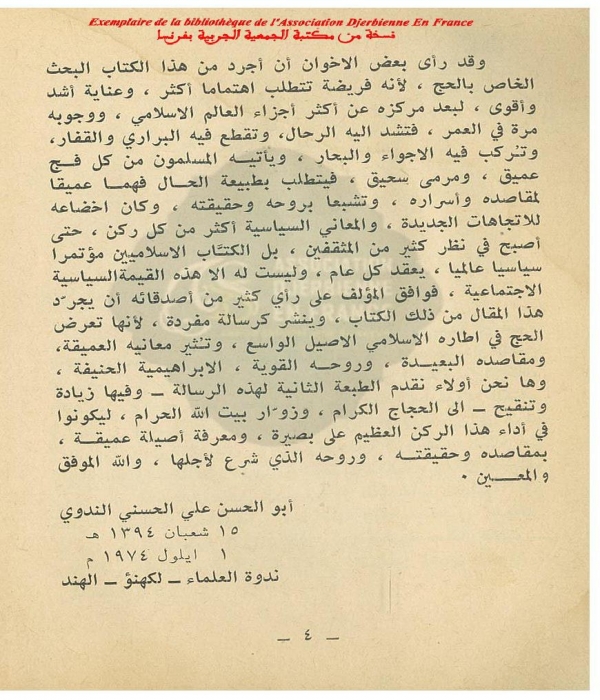 Exemplaire de la bibliothèque de l'Association Djerbienne En France
نسخة من مكتبة الجمعية الجربية بفرنسا
وقد رأى بعض الاخوان أن أجرد من هذا الكتاب البحث
الخاص بالحج ، لأنه فريضة تتطلب اهتماما أكثر ، وعناية أشد
وأقوى ، لبعد مركزه عن أكثر أجزاء العالم الاسلامي ، ووجوبه
مرة في العمر ، فتشد اليه الرحال، وتقطع فيه البراري والقفار،
وتركب فيه الاجواء والبحار ، ويأتيـه المسلمون من كل فـج
عميق ، ومرمى سحيق ، فيتطلب بطبيعة الحـال فهمـا عميقا
لمقاصده وأسراره ، وتشبعا بروحه وحقيقته ، وكان اخضاعه
للاتجاهات الجديدة ، والمعاني السياسية أكثر من كل ركن ، حتى
أصبح في نظر كثير من المثقفين ، بل الكتّاب الاسلاميين مؤتمرا
سياسيا عالميا ، يعقد كل عام ، وليست له الا هذه القيمة السياسية
الاجتماعية ، فوافق المؤلف على رأي كثير من أصدقائه أن يجرّد
هذا المقال من ذلك الكتاب ، وينشر كرسالة مفردة ، لأنها تعرض
الحج في اطاره الاسلامي الاصيل الواسع ، وتثير معانيه العميقة،
ومقاصده البعيـدة ، وروحـه القوية ، الابراهيمية الحنيفة ،
وها نحن أولاء نقدم الطبعة الثانية لهذه الرسالة ــ وفيها زيادة
وتنقيح ــ الى الحجاج الكرام ، وزوّار بيت الله الحرام ، ليكونوا
في أداء هذا الركن العظيم على بصيرة ، ومعرفة أصيلة عميقـة ،
بمقاصده وحقيقتـه ، وروحه الذي شرع لأجلها ، والله الموفق
والمعـــين .
أبو الحسن علي الحسني الندوي
١٥ شعبان ١٣٩٤ هـ
١ ايلول ١٩٧٤ م
ندوة العلماء ــ لكهنؤ ــ الهند
ــ ٤ ــ